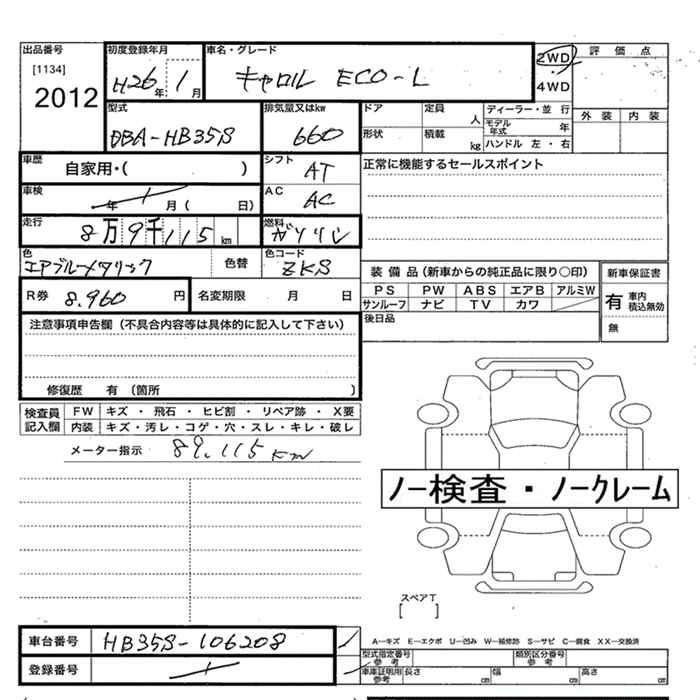 出品番号
[1134]
2012
初度登録年月
H26年 1月
車名・グレード
キャロル ECO-L
2WD
4WD
評価点
外装 内装
型式
DBA-HB35S
排気量又はkw
660
ドア 定員 人
形状 積載 kg
ディーラー・並行
モデル年式 年
ハンドル 左・右
車歴
自家用・( )
シフト
AT
正常に機能するセールスポイント
車検
年 月 ( 日)
AC
AC
走行
8万9千115km
燃料
ガソリン
色
エアブルーメタリック
色替
色コード
ZKS
R券 8.960 円
名変期限 月 日
装備品(新車からの純正品に限り○印)
PS PW ABS エアB アルミW
サンルーフ ナビ TV カワ
後日品
新車保証書
有 車内積込無効
無
注意事項申告欄(不具合内容等は具体的に記入して下さい)
修復歴 有(箇所 )
検査員記入欄
FW キズ・飛石・ヒビ割・リペア跡・X要
内装 キズ・汚レ・コゲ・穴・スレ・キレ・破レ
メーター指示 89.115km
ノー検査・ノークレーム
スペアT
[ ]
車台番号 HB35S-106208
登録番号
A―キズ E―エクボ U―凹み W―補修跡 S―サビ C―腐食 XX―交換済
型式指定番号 参考
類別区分番号 参考
車庫証明用 参考 長さ cm 幅 cm 高さ cm